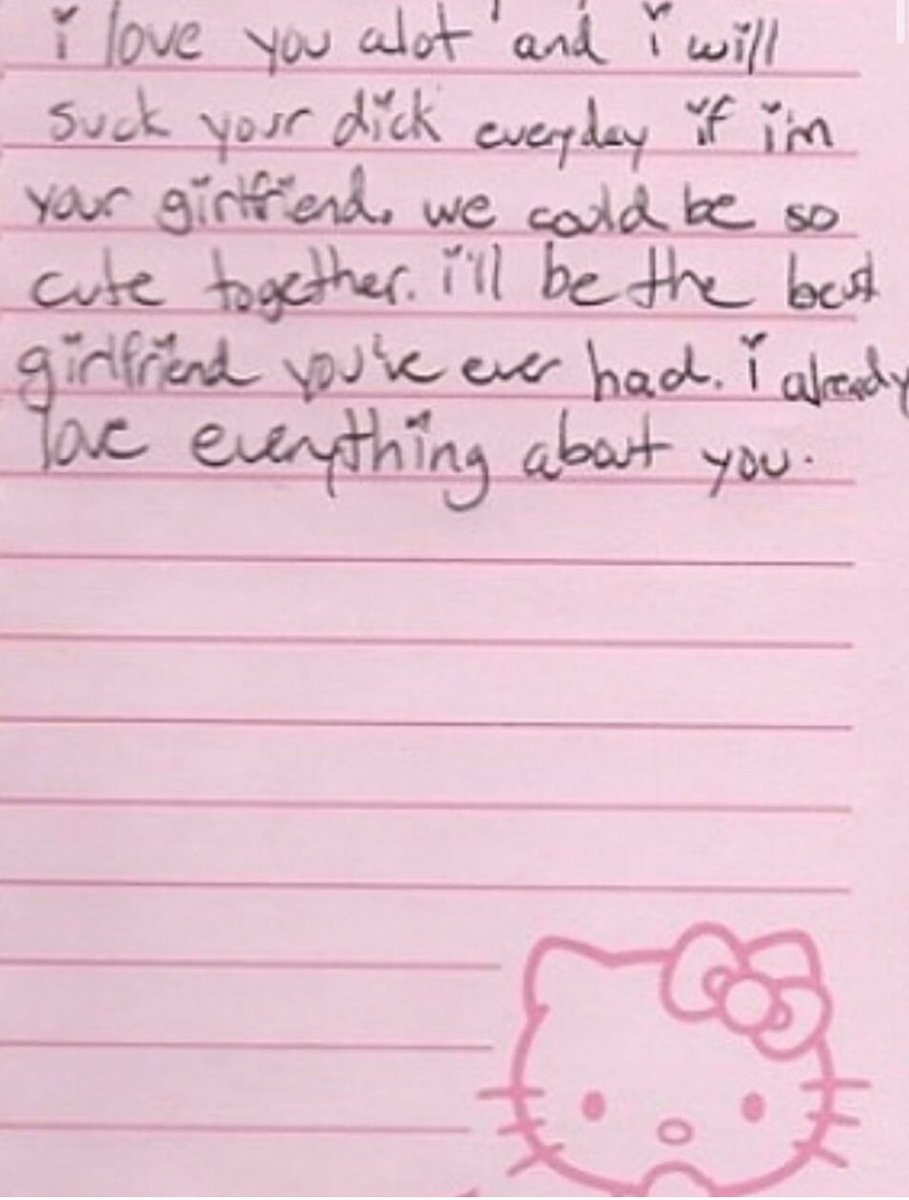 i love you alot and i will
suck your dick everyday if i'm
your girlfriend. we could be so
cute together. i'll be the best
girlfriend you've ever had. i already
love everything about you.